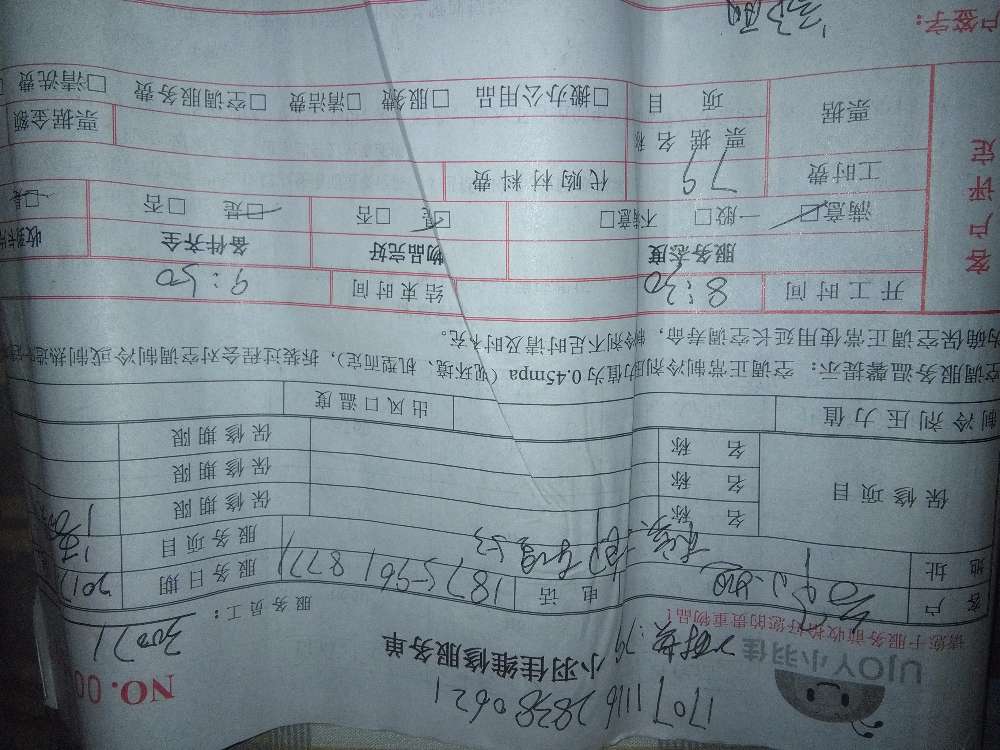 1707 1116 2838 0621
UJOY小羽佳
小羽佳维修服务单
NO.00
请您于服务前收拾好您的贵重物品!
服务员工: 30071
客户
电话 1875-561 8771
服务日期 2017
地址
服务项目
保修项目
名称
保修期限
名称
保修期限
名称
保修期限
制冷剂压力值
出风口温度
空调服务温馨提示: 空调正常制冷剂压力值为0.45mpa(视环境、机型而定),拆装过程会对空调制冷或制热造
为确保空调正常使用延长空调寿命,制冷剂不足时请及时补充。
客户评定
开工时间 8:30
结束时间 9:30
服务态度
物品完好
备件齐全
满意□ 一般□ 不满意□
□是 □否
□是 □否
□是
工时费 79
代购材料费
票据
票据名称
票据金额
项目
□搬办公用品 □服务费 □清洁费 □空调服务费 □清洗费
户签字: